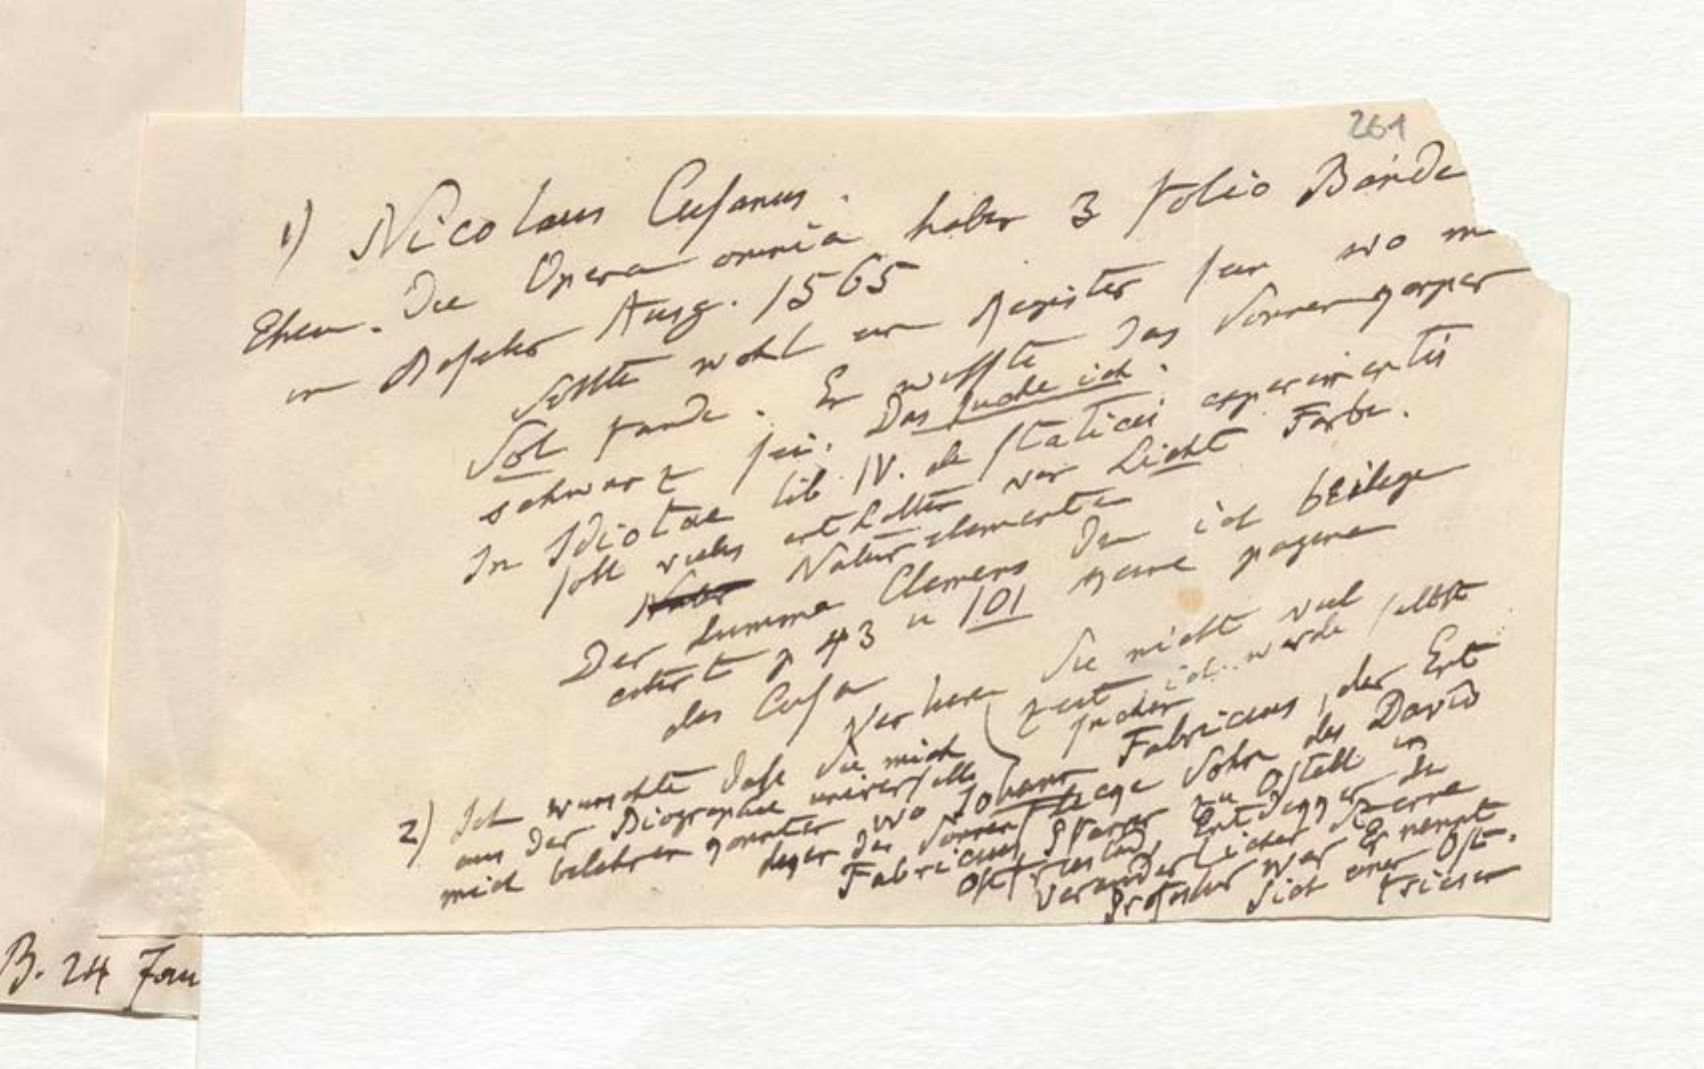 261
1) Nicolaus Cusanus.
Ehem. Die Opera omnia haben 3 Folio Bände
in Baseler Ausg. 1565
Sollte wohl ein Register sein wo m
Sol fände. Er wusste das Sonnenkörper
schwarz sei. Das suche ich.
In Idiotae lib. IV. de staticis experimentis
soll vieles enthalten von Licht Farbe.
Naturelemente
Der dumme Clemens den ich beilege
citirt p 43 u 101 keine pagina
des Cusa
Verlieren Sie nicht viel
Zeit ich werde selbst
suchen
2) Ich wünschte daß Sie mich
aus der Biographie universelle
mich belehren konnten wo Johann Fabricius, der Ent
deker der Sonnenflecke Sohn des David
Fabricius, Pfarrer zu Ostell in
Ostfriesland, Entdekker der
veränderlicher Sterne
Professor war Er nennt
sich einen Ost-
friesen
B. 24 Jan